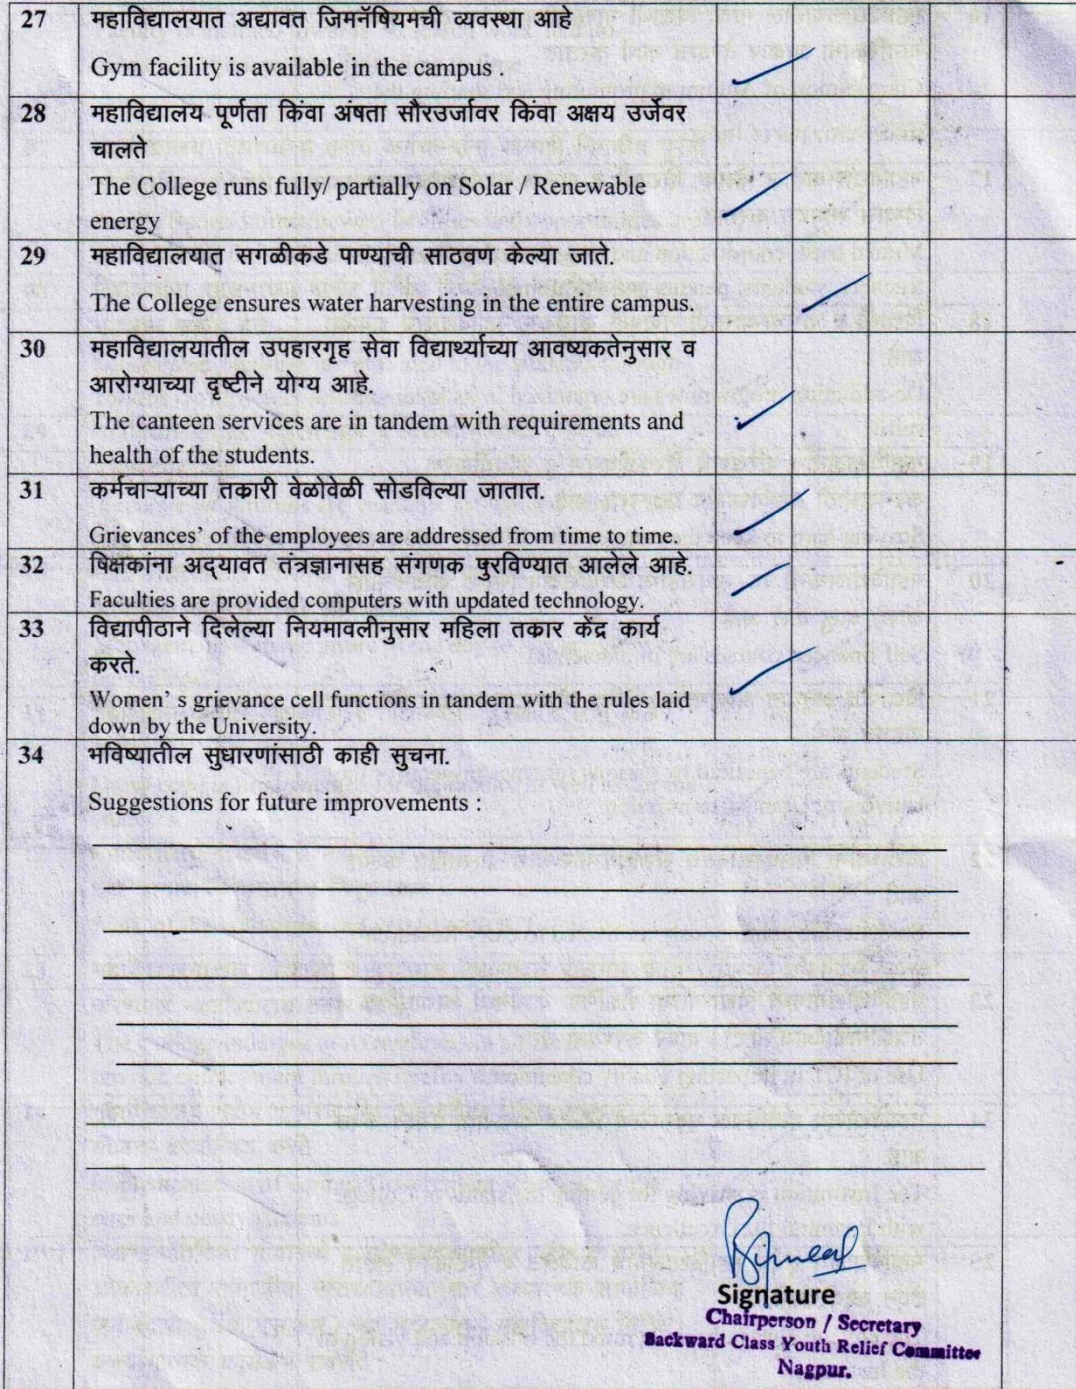 27 महाविद्यालयात अद्यावत जिमनॅषियमची व्यवस्था आहे
Gym facility is available in the campus .
28 महाविद्यालय पूर्णता किंवा अंषता सौरउर्जावर किंवा अक्षय उर्जेवर
चालते
The College runs fully/ partially on Solar / Renewable
energy
29 महाविद्यालयात सगळीकडे पाण्याची साठवण केल्या जाते.
The College ensures water harvesting in the entire campus.
30 महाविद्यालयातील उपहारगृह सेवा विद्यार्थ्याच्या आवष्यकतेनुसार व
आरोग्याच्या दृष्टीने योग्य आहे.
The canteen services are in tandem with requirements and
health of the students.
31 कर्मचाऱ्याच्या तकारी वेळोवेळी सोडविल्या जातात.
Grievances’ of the employees are addressed from time to time.
32 षिक्षकांना अद्‌यावत तंत्रज्ञानासह संगणक पुरविण्यात आलेले आहे.
Faculties are provided computers with updated technology.
33 विद्यापीठाने दिलेल्या नियमावलीनुसार महिला तकार केंद्र कार्य
करते.
Women’ s grievance cell functions in tandem with the rules laid
down by the University.
34 भविष्यातील सुधारणांसाठी काही सुचना.
Suggestions for future improvements :
Signature
Chairperson / Secretary
Backward Class Youth Relief Committee
Nagpur.